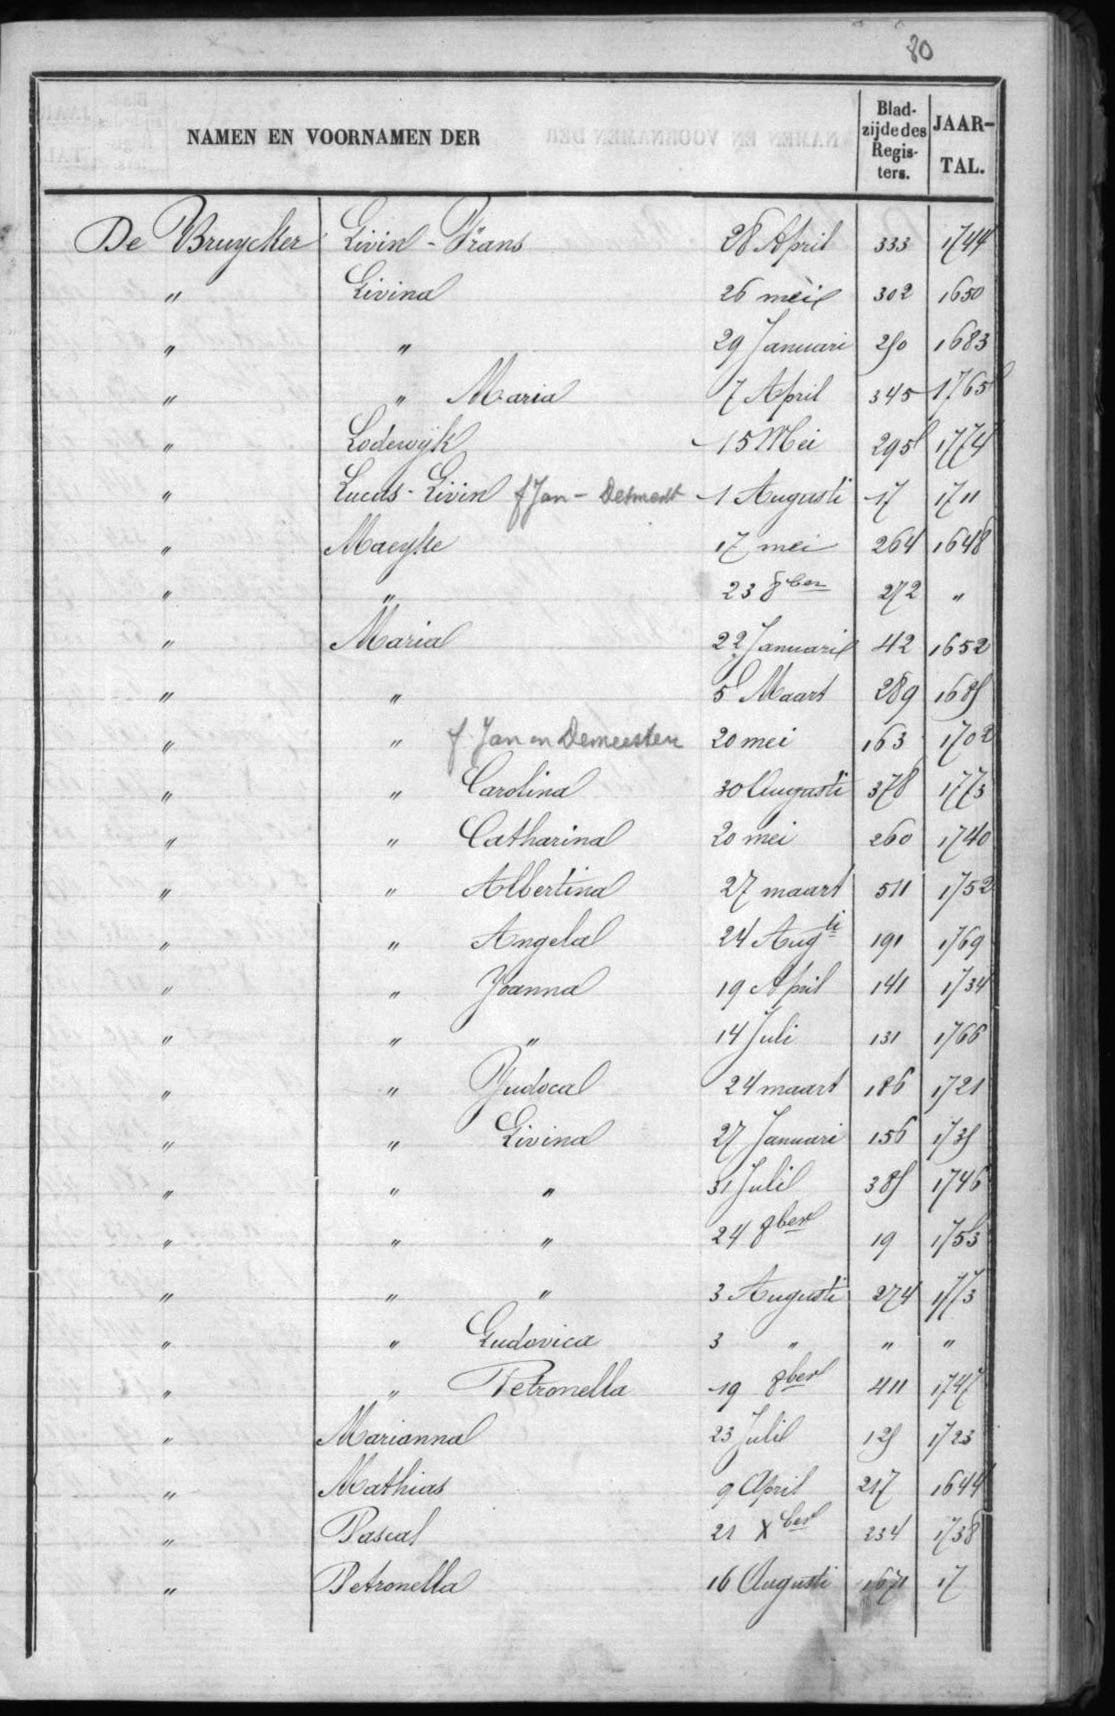 80
NAMEN EN VOORNAMEN DER Blad-zijde des Regis-ters. JAAR-TAL.
De Bruycker Livin-Frans 28 April 333 1744
" Livina 26 mei 302 1650
" " 29 Januari 250 1683
" " Maria 7 April 345 1765
" Lodewijk 15 Mei 295 1774
" Lucas-Livin f Jan - Desmedt 1 Augusti 17 1711
" Maeyke 17 mei 264 1648
" " 23 8ber 272 "
" Maria 22 Januari 42 1652
" " 5 Maart 289 1685
" " f. Jan en Demeestere 20 mei 163 1702
" " Carolina 30 Augusti 378 1773
" " Catharina 20 mei 260 1740
" " Albertina 27 maart 511 1752
" " Angela 24 Augti 191 1769
" " Joanna 19 April 141 1734
" " " 14 Juli 131 1766
" " Judoca 24 maart 186 1721
" " Livina 27 Januari 156 1735
" " " 31 Juli 385 1746
" " " 24 8ber 19 1753
" " " 3 Augusti 274 1773
" " Ludovica 3 " " "
" " Petronella 19 8ber 411 1747
" Marianna 23 Juli 125 1723
" Mathias 9 April 217 1644
" Pascal 21 Xber 234 1738
" Petronella 16 Augusti 1671 17